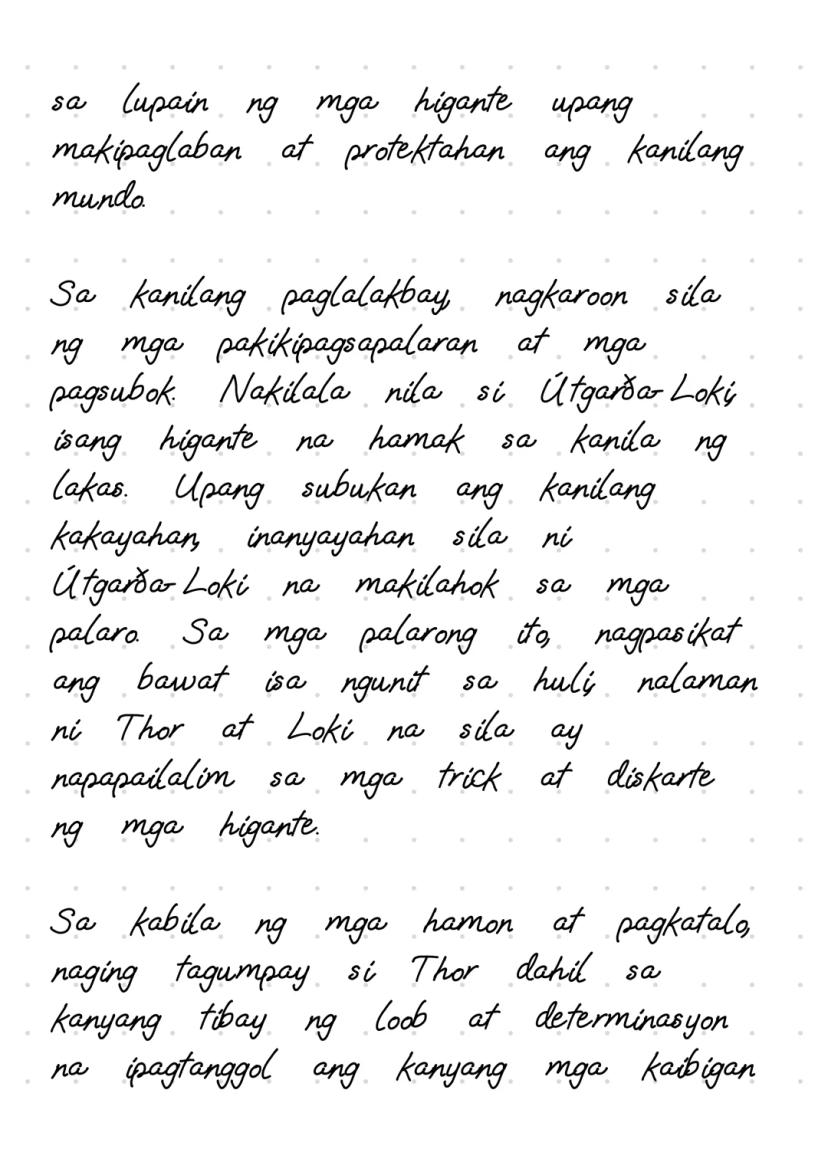 sa lupain ng mga higante upang
makipaglaban at protektahan ang kanilang
mundo.
Sa kanilang paglalakbay, nagkaroon sila
ng mga pakikipagsapalaran at mga
pagsubok. Nakilala nila si Útgarða-Loki,
isang higante na hamak sa kanila ng
lakas. Upang subukan ang kanilang
kakayahan, inanyayahan sila ni
Útgarða-Loki na makilahok sa mga
palaro. Sa mga palarong ito, nagpasikat
ang bawat isa ngunit sa huli, nalaman
ni Thor at Loki na sila ay
napapailalim sa mga trick at diskarte
ng mga higante.
Sa kabila ng mga hamon at pagkatalo,
naging tagumpay si Thor dahil sa
kanyang tibay ng loob at determinasyon
na ipagtanggol ang kanyang mga kaibigan